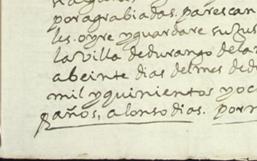 por agrabiadas. parescan
les. oyre y guardare su Jus
la Villa de durango de la
a beinte dias del mes de d
mil y quinientos y oc
años, alonso dias. por